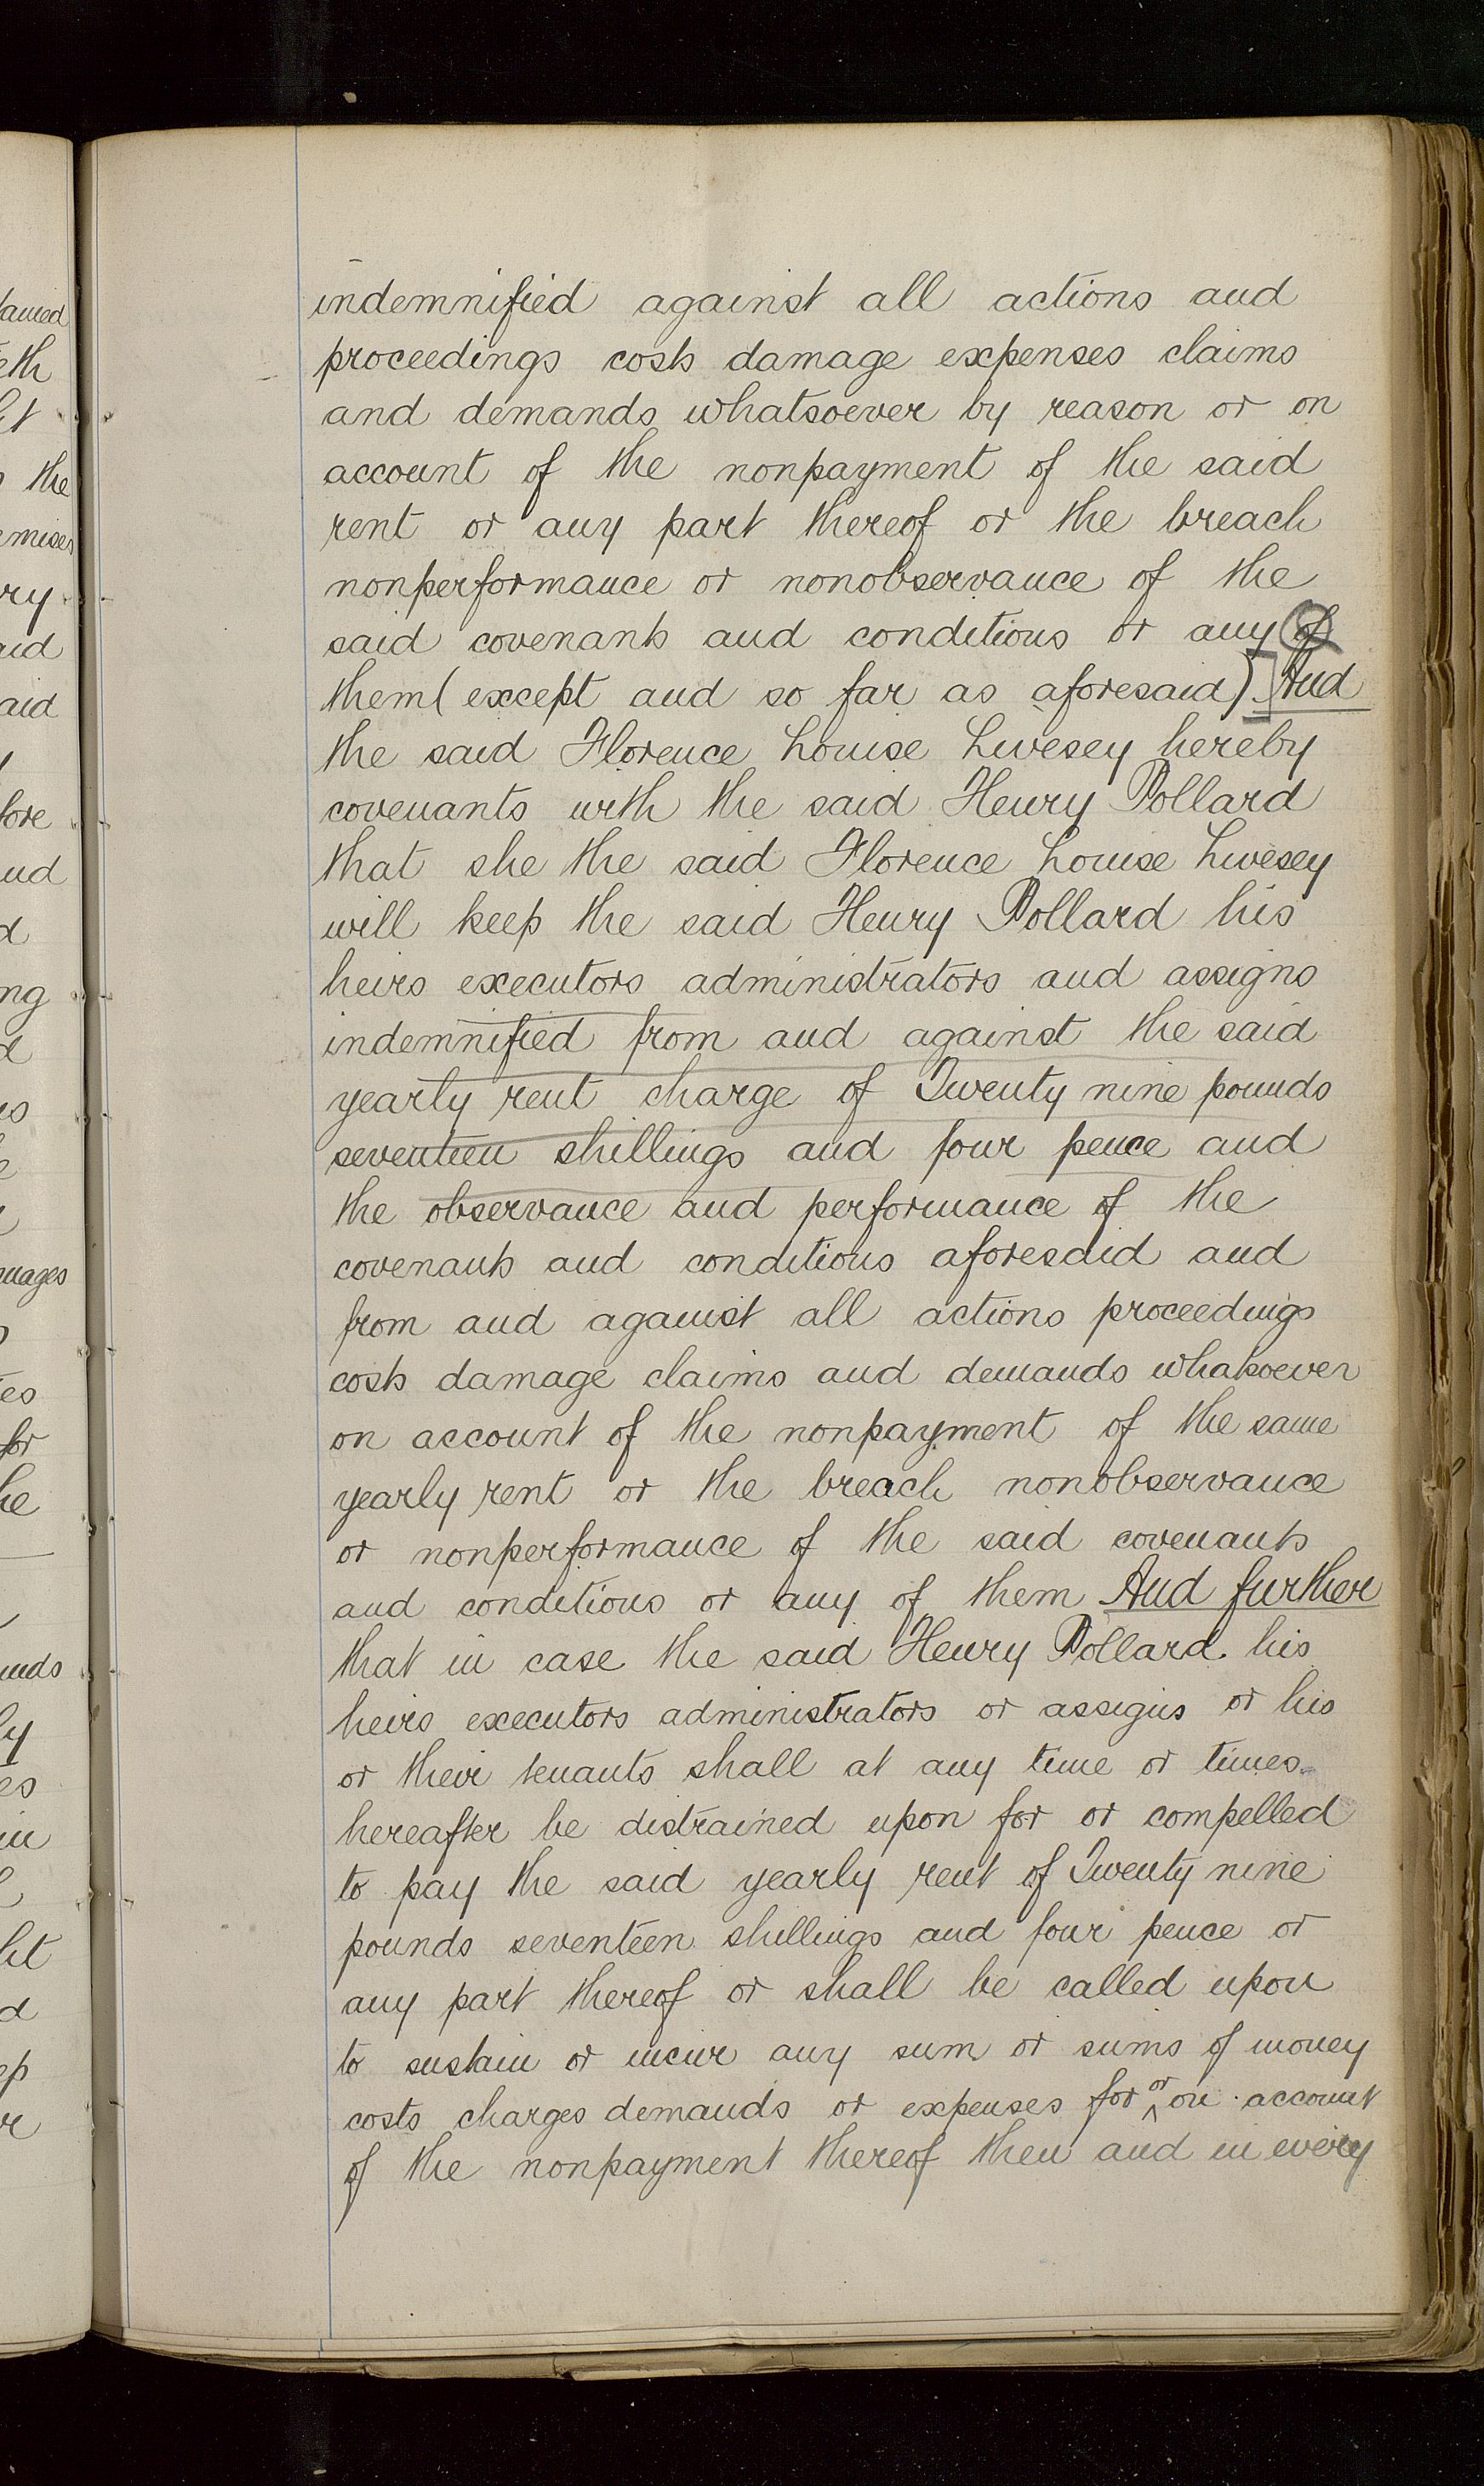 indemnified against all actions and
proceedings costs damage expenses claims
and demands whatsoever by reason or on
account of the nonpayment of the said
rent or any part thereof or the breach
nonperformance or nonobservance of the
said covenants and conditions or any of
them (except and so far as aforesaid) And
the said Florence Louise Livesey hereby
covenants with the said Henry Pollard
that she the said Florence Louise Livesey
will keep the said Henry Pollard his
heirs executors administrators and assigns
indemnified from and against the said
yearly rent charge of Twenty nine pounds
seventeen shillings and four pence and
the observance and performance of the
covenants and conditions aforesaid and
from and against all actions proceedings
costs damage claims and demands whatsoever
on account of the nonpayment of the same
yearly rent or the breach nonobservance
or nonperformance of the said covenants
and conditions or any of them And further
that in case the said Henry Pollard his
heirs executors administrators or assigns or his
or their tenants shall at any time or times
hereafter be distrained upon for or compelled
to pay the said yearly rent of Twenty nine
pounds seventeen shillings and four pence or
any part thereof or shall be called upon
to sustain or incur any sum or sums of money
costs charges demands or expenses for or on account
of the nonpayment thereof then and in every